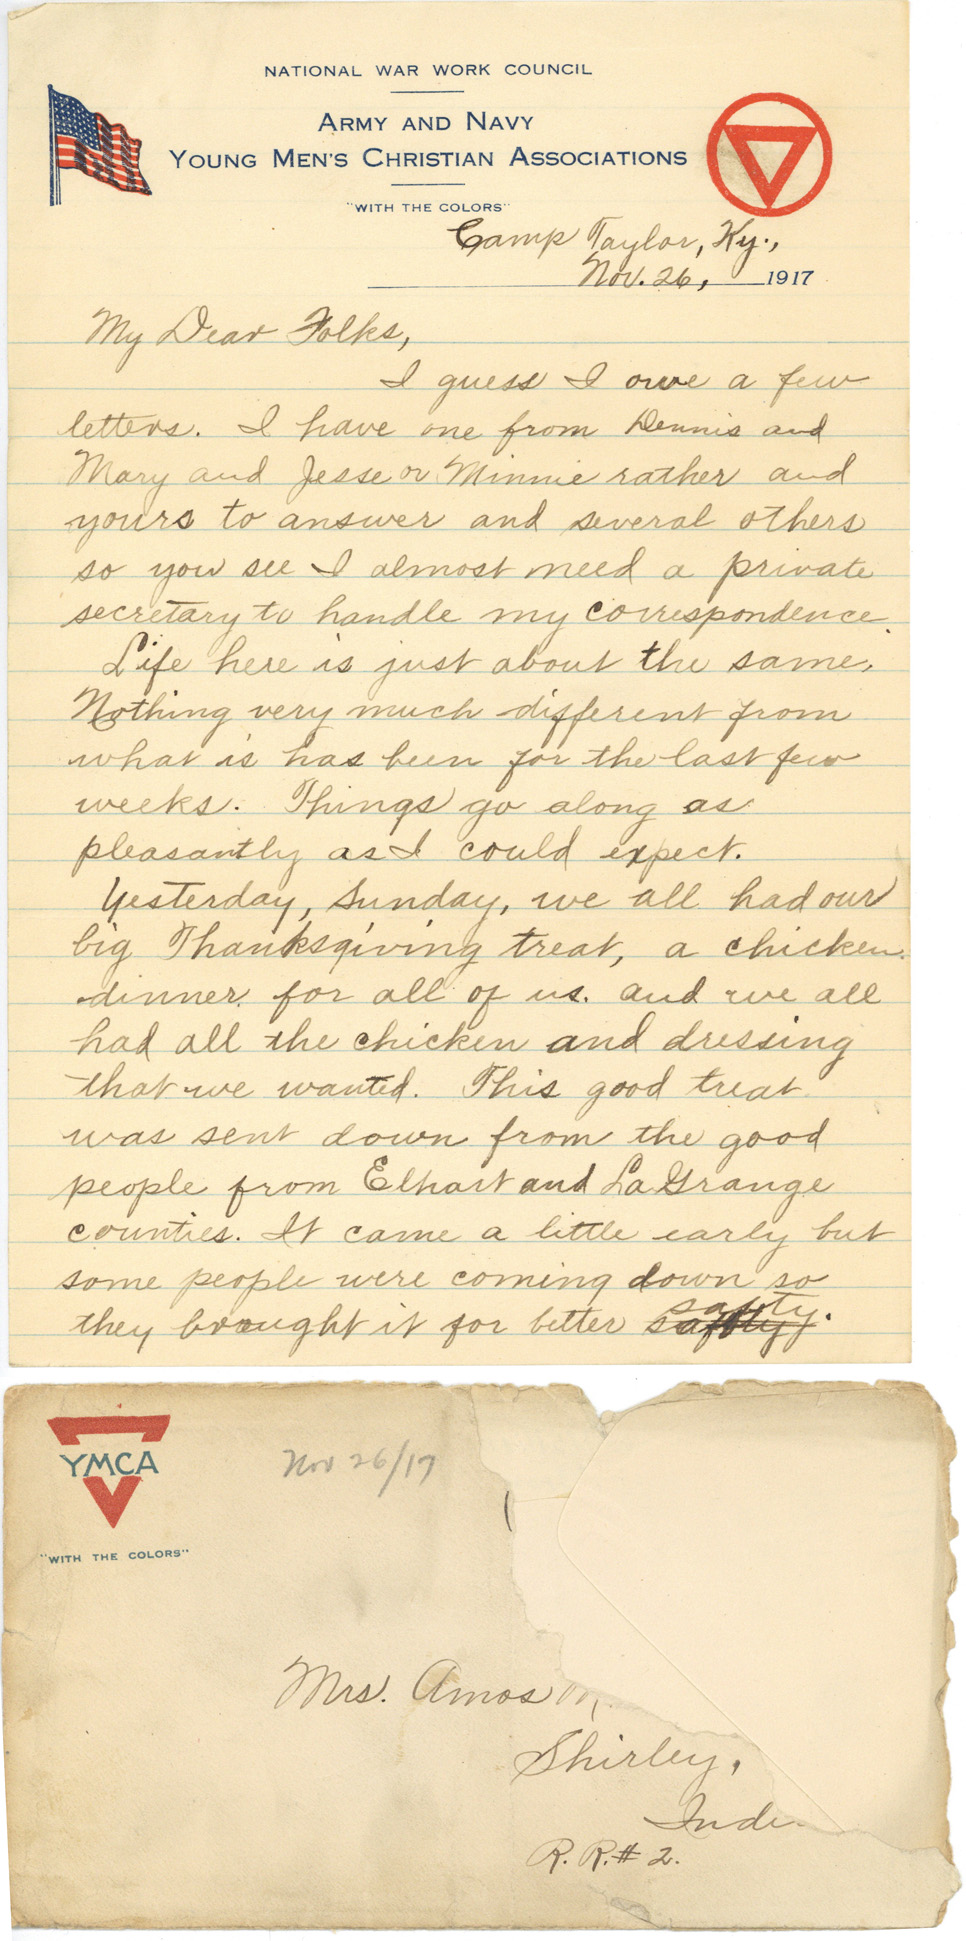 NATIONAL WAR WORK COUNCIL
ARMY AND NAVY
YOUNG MEN'S CHRISTIAN ASSOCIATIONS
"WITH THE COLORS"
Camp Taylor, Ky.,
Nov. 26, 1917
My Dear Folks,
I guess I owe a few
letters. I have one from Dennis and
Mary and Jesse or Minnie rather and
yours to answer and several others
so you see I almost need a private
secretary to handle my correspondence.
Life here is just about the same.
Nothing very much different from
what is has been for the last few
weeks. Things go along as
pleasantly as I could expect.
Yesterday, Sunday, we all had our
big Thanksgiving treat, a chicken
dinner for all of us. and we all
had all the chicken and dressing
that we wanted. This good treat
was sent down from the good
people from Elhart and LaGrange
counties. It came a little early but
some people were coming down so
they brought it for better safty.
YMCA
"WITH THE COLORS"
Nov 26/17
Mrs. Amos
Shirley,
Ind.
R. R. # 2.